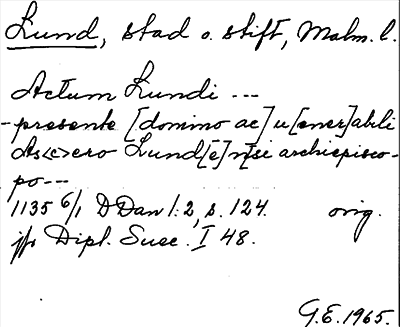 Lund, stad o. stift, Malm. l.
Actum Lundi ---
- presente [domino ac] u[ener]abili
As<c>ero Lund[e]n[si archiepisco-
po---
1135 6/1 DDan 1:2, s. 124. orig.
jfr Dipl. Suec. I 48.
G.E. 1965.